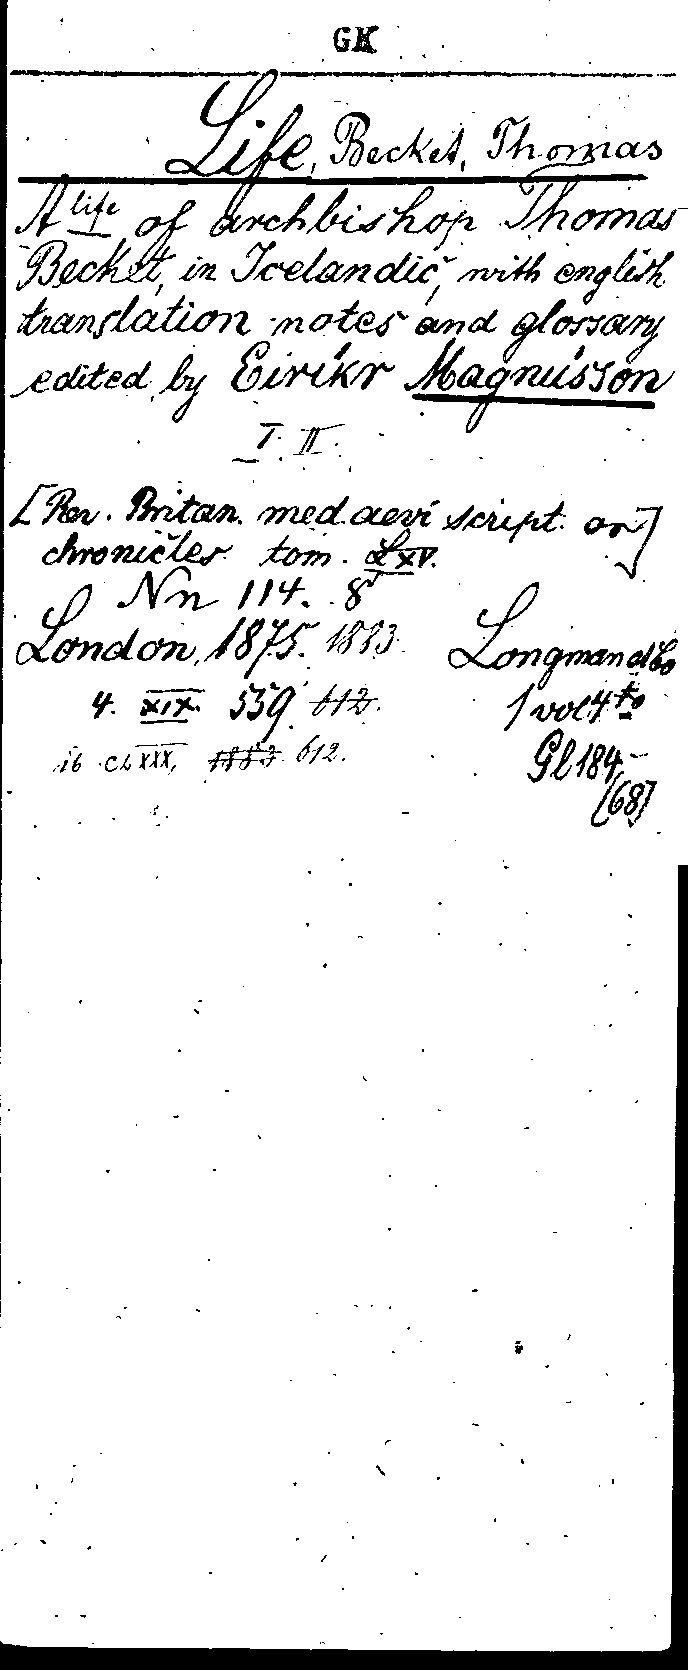 GK
Life, Becket, Thomas
A life of archbishop Thomas
Becket, in Icelandic, with english
translation notes and glossary
edited by Eiríkr Magnússon
I. II.
[Rer. Britan. med. aevi script. or]
chronicles tom. LXV.
Nn 114. 8°
London, 1875. 1883. Longman et Co
4. XIX. 559. 612. 1 vol 4to
16 CLXXX, 1883 612. Gl 184,-
(68)